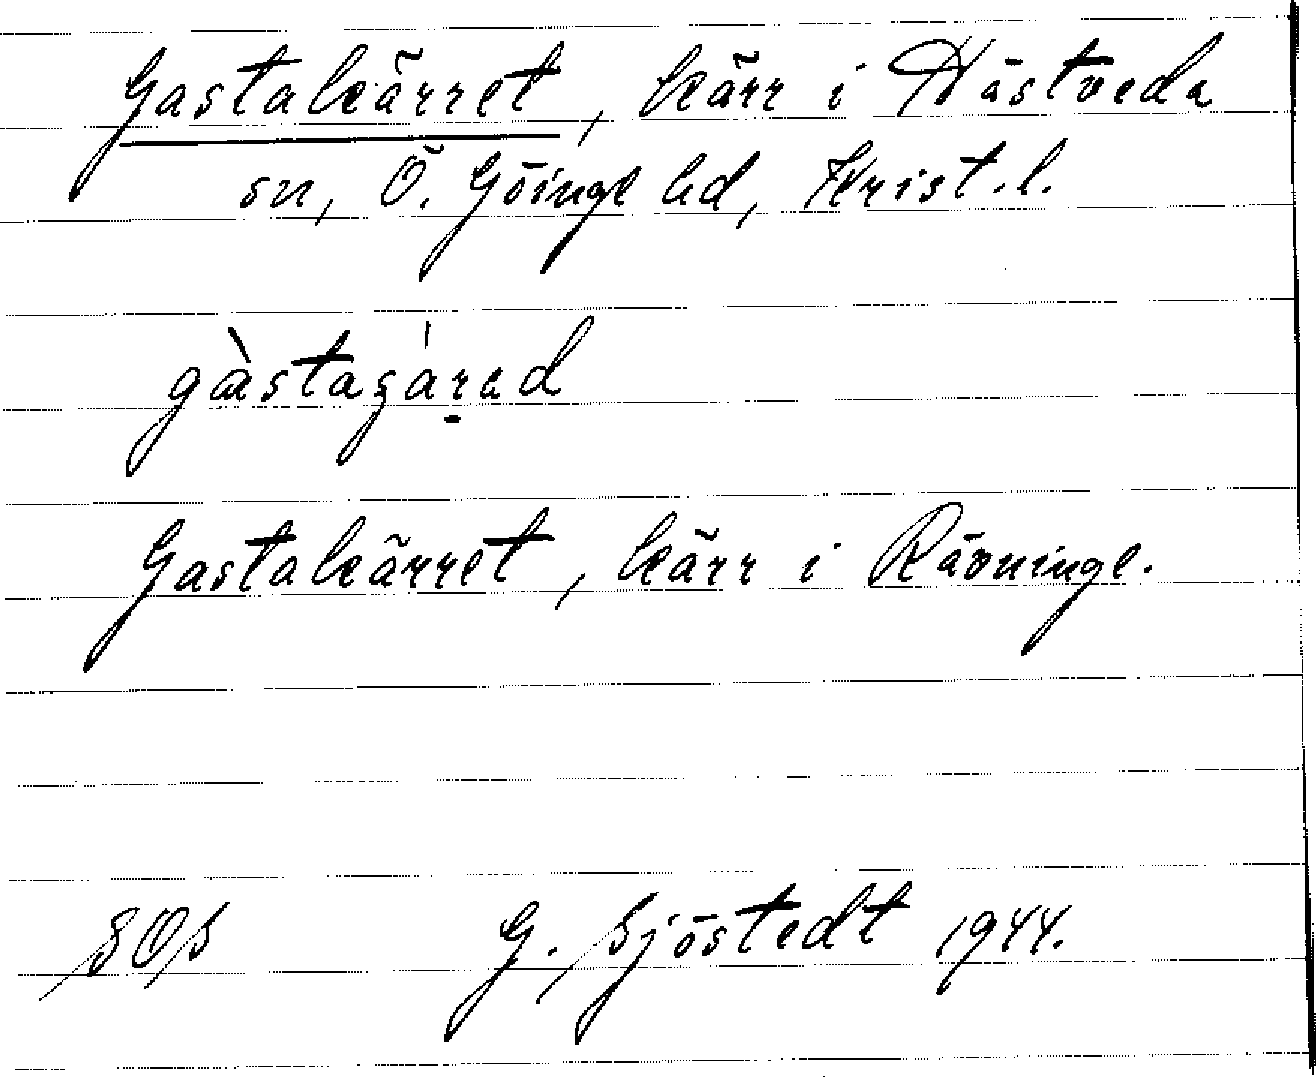 Gastakärret, kärr i Hästveda
sn, Ö. Göinge hd, Krist. l.
gàstaʂárad
Gastakärret, kärr i Rävninge.
SOS G. Sjöstedt 1944.